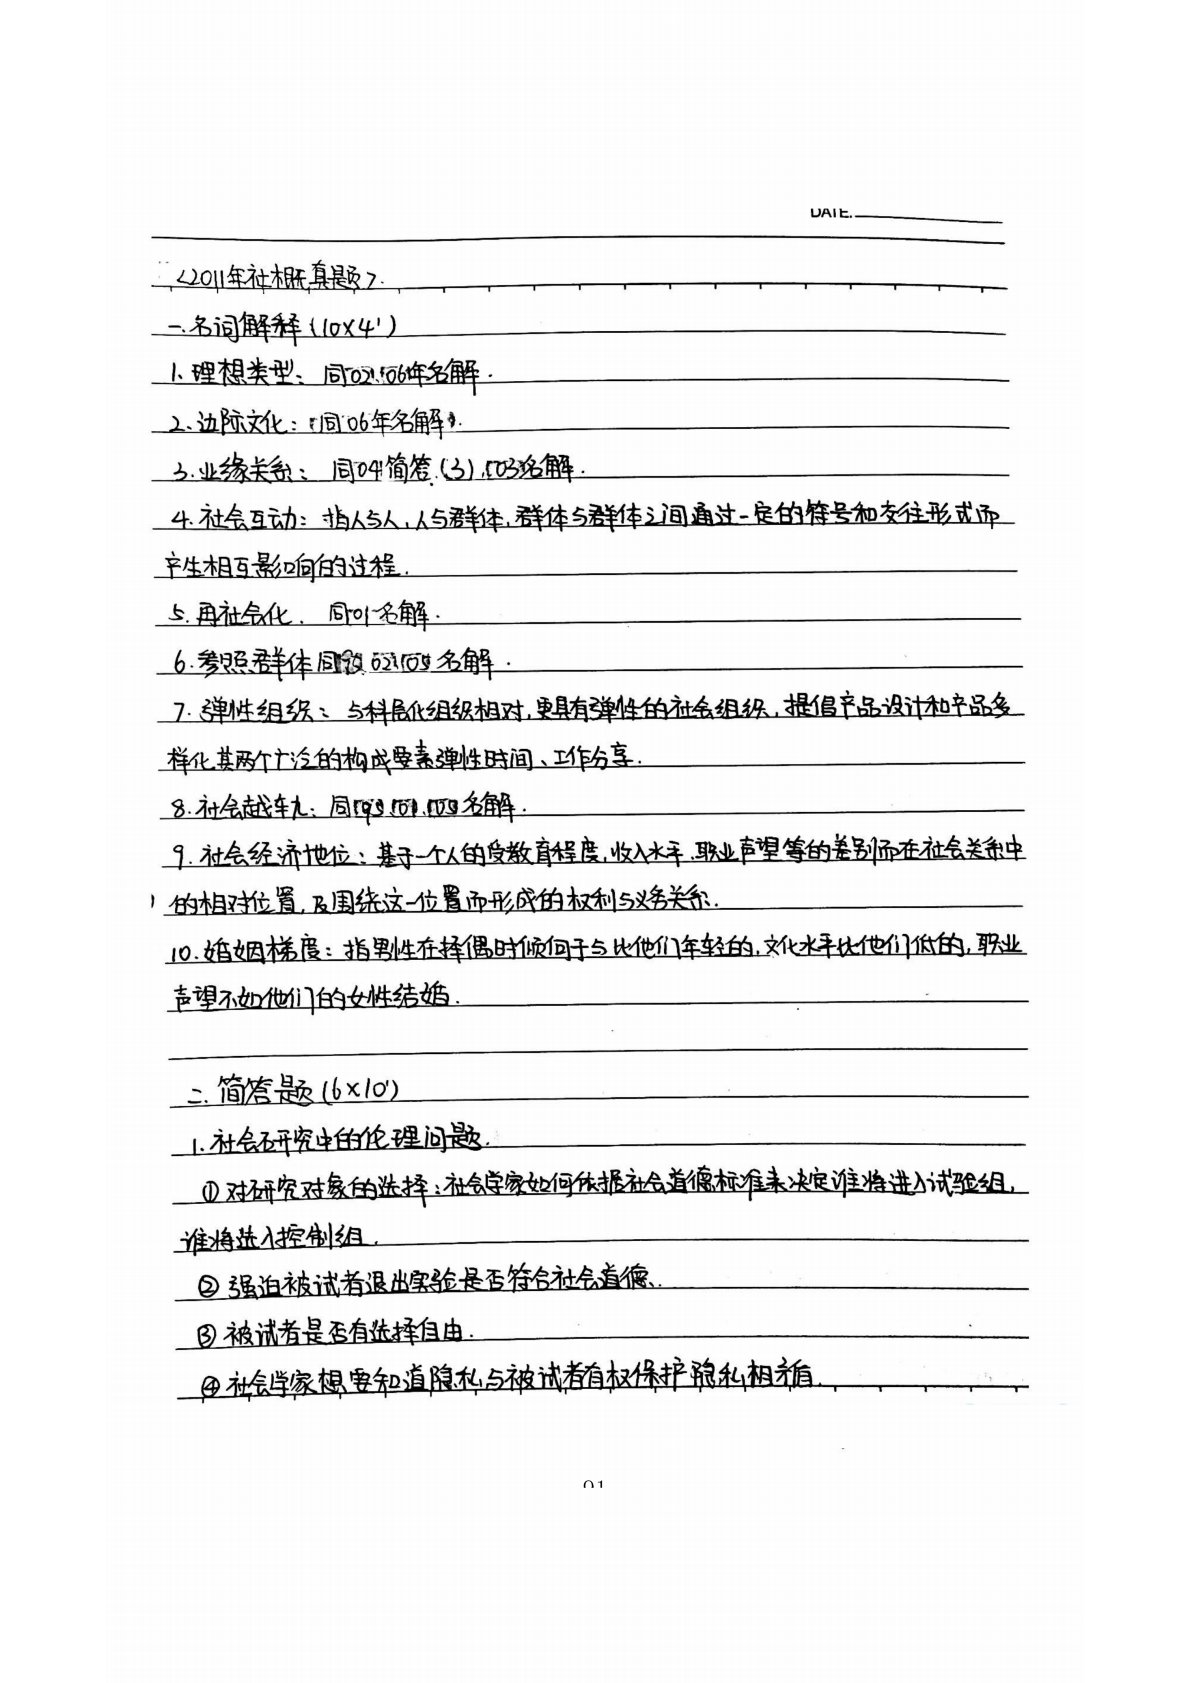 DATE.
<2011年社概真题>.
一.名词解释(10×4')
1.理想类型: 同02.06年名解.
2.边际文化:(同06年名解).
3.业缘关系: 同04简答(3).03名解.
4.社会互动: 指人与人,人与群体,群体与群体之间通过一定的符号和交往形式而
产生相互影响的过程.
5.再社会化. 同01名解.
6.参照群体同 02.05名解.
7.弹性组织: 与科层化组织相对,更具有弹性的社会组织,提倡产品设计和产品多
样化其两个广泛的构成要素弹性时间、工作分享.
8.社会越轨: 同 名解.
9.社会经济地位: 基于一个人的受教育程度,收入水平.职业声望等的差别而在社会关系中
的相对位置,及围绕这一位置而形成的权利与义务关系.
10.婚姻梯度: 指男性在择偶时倾向于与比他们年轻的,文化水平比他们低的,职业
声望不如他们的女性结婚.
二.简答题(6×10')
1.社会研究中的伦理问题.
①对研究对象的选择:社会学家如何依据社会道德标准来决定谁将进入试验组,
谁将进入控制组.
②强迫被试者退出实验是否符合社会道德.
③被试者是否有选择自由.
④社会学家想要知道隐私与被试者有权保护隐私相矛盾.
91